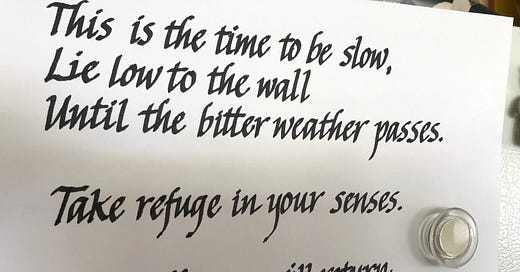 This is the time to be slow,
Lie low to the wall
Until the bitter weather passes.
Take refuge in your senses.